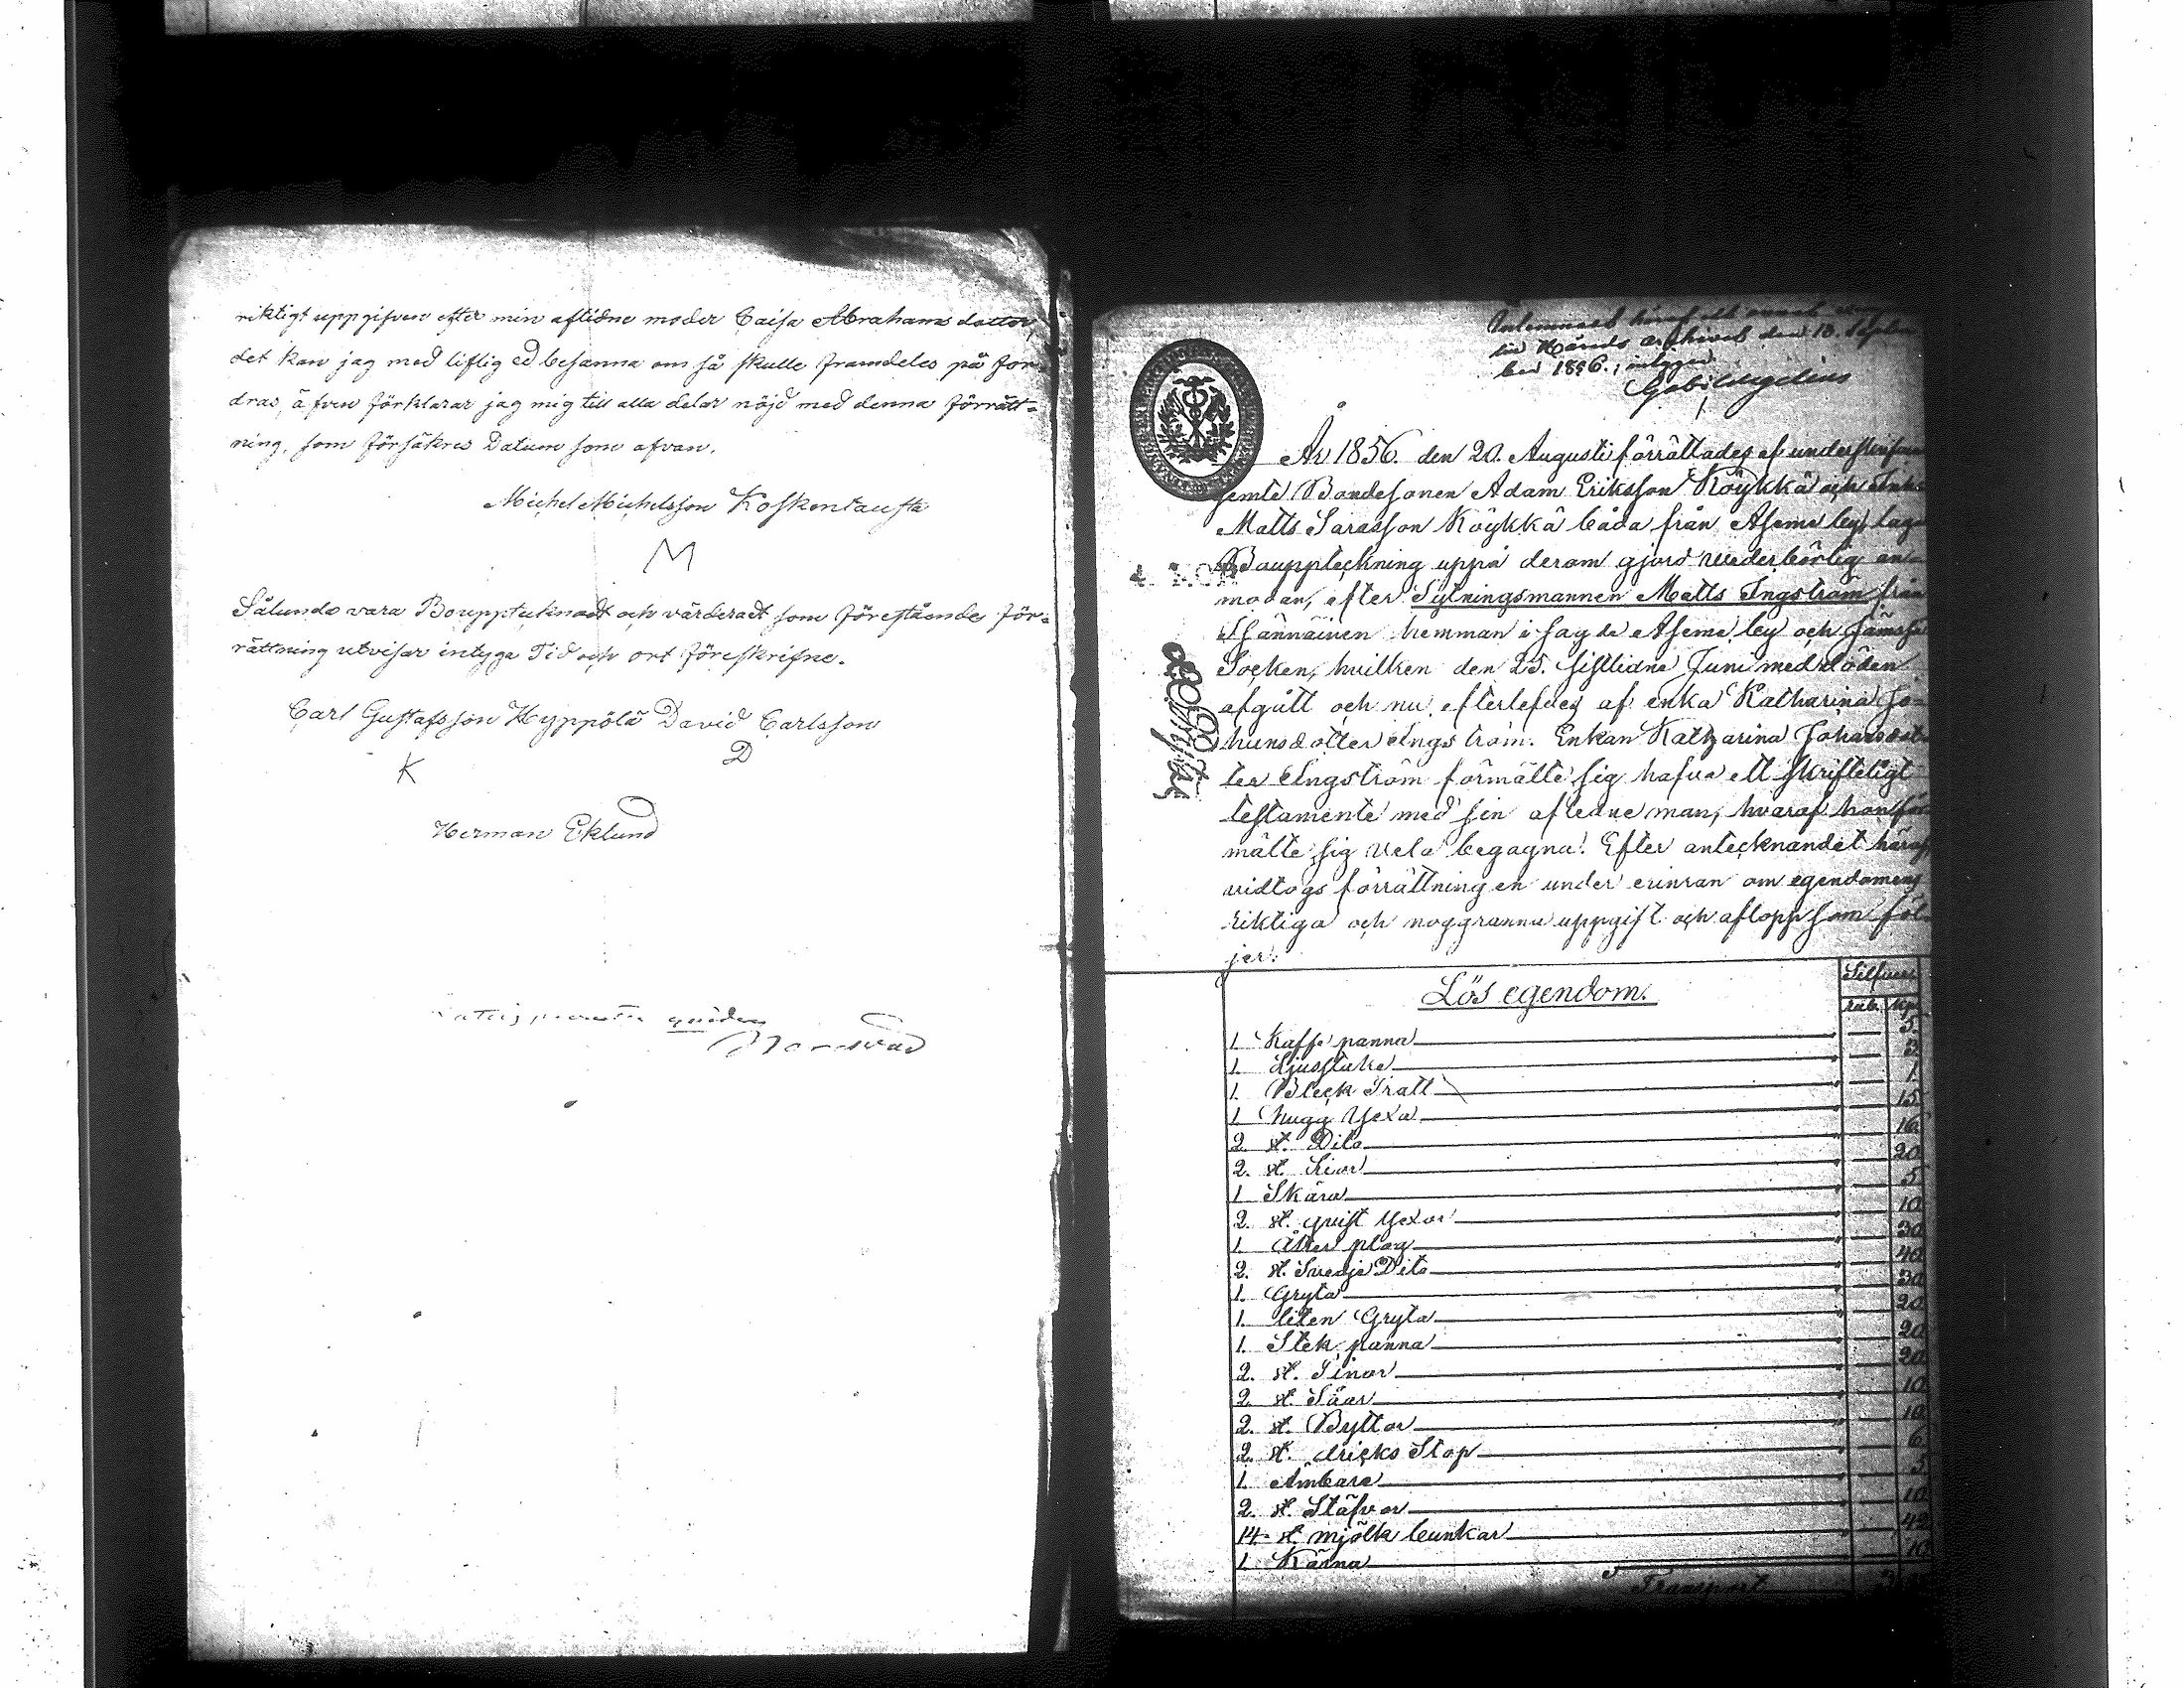 riktigt uppgifven efter min aflidne moder Caisa Abrahams dotter,
det kan jag med liflig ed besanna om så skulle framdeles på for-
dras, äfven förklarar jag mig till alla delar nöjd med denna förrätt=
ning, som försäkras Datum som ofvan.
Michel Michelsson Koskentausta
M
Sålunda vara Boupptecknadt och värderadt som förestående för=
rättning utvisar intyga Tid och ort föreskrifne.
Carl Gustafsson Hyppölä David Carlsson
K D
Herman Eklund
den 18. Septem
ber 1856., intygar
År 1856. den 20. Augusti förrättades af underskrifven
jemte Bondesonen Adam Eriksson Köykkä och
Matts Sarasson Köykkä båda från Asema by, laga
Bouppteckning uppå derom gjord vederbörlig an-
modan, efter Sytningsmannen Matts Ingström från
Männäinen hemman i sagde Asema by och
Socken, hvilken den 25. sistlidne Juni med döden
afgått och nu efterlefdes af enka Katharina Jo-
hansdotter Ingström. Enkan Katharina Johansdot
ter Ingström förmälte sig hafva ett skrifteligt
testamente med sin aflidne man, hvaraf hon för
mälte sig vela begagna. Efter antecknandet häraf
vidtogs förrättningen under erinran om egendomens
riktiga och noggranna uppgift och aflopp som föl
jer:
Lös egendom. Silfver
Rub. Kop.
1. Kaffe panna " — 5.
1. Ljusstake " — 3.
1. Bleck Tratt " — 1.
1. hugg Yxa " — 15.
2. st. Dito " — 16.
2. st. Liar " — 20.
1. Skära " — 5.
2. st. qvist Yxor " — 10.
1. Åker plog " — 30.
2. st. Svedje Dito " — 40.
1. Gryta " — 30.
1. liten Gryta " — 20.
1. Stek panna " — 20.
2. st. Tinor " — 20.
2. st. Såar " — 10.
2. st. Byttor " — 10.
2. st. dricks Stop " — 6.
1. Ämbare " — 5.
2. st. Stäfvor " — 10.
14. st. mjölk bunkar " — 42.
1. Kärna " — 10.
Transport